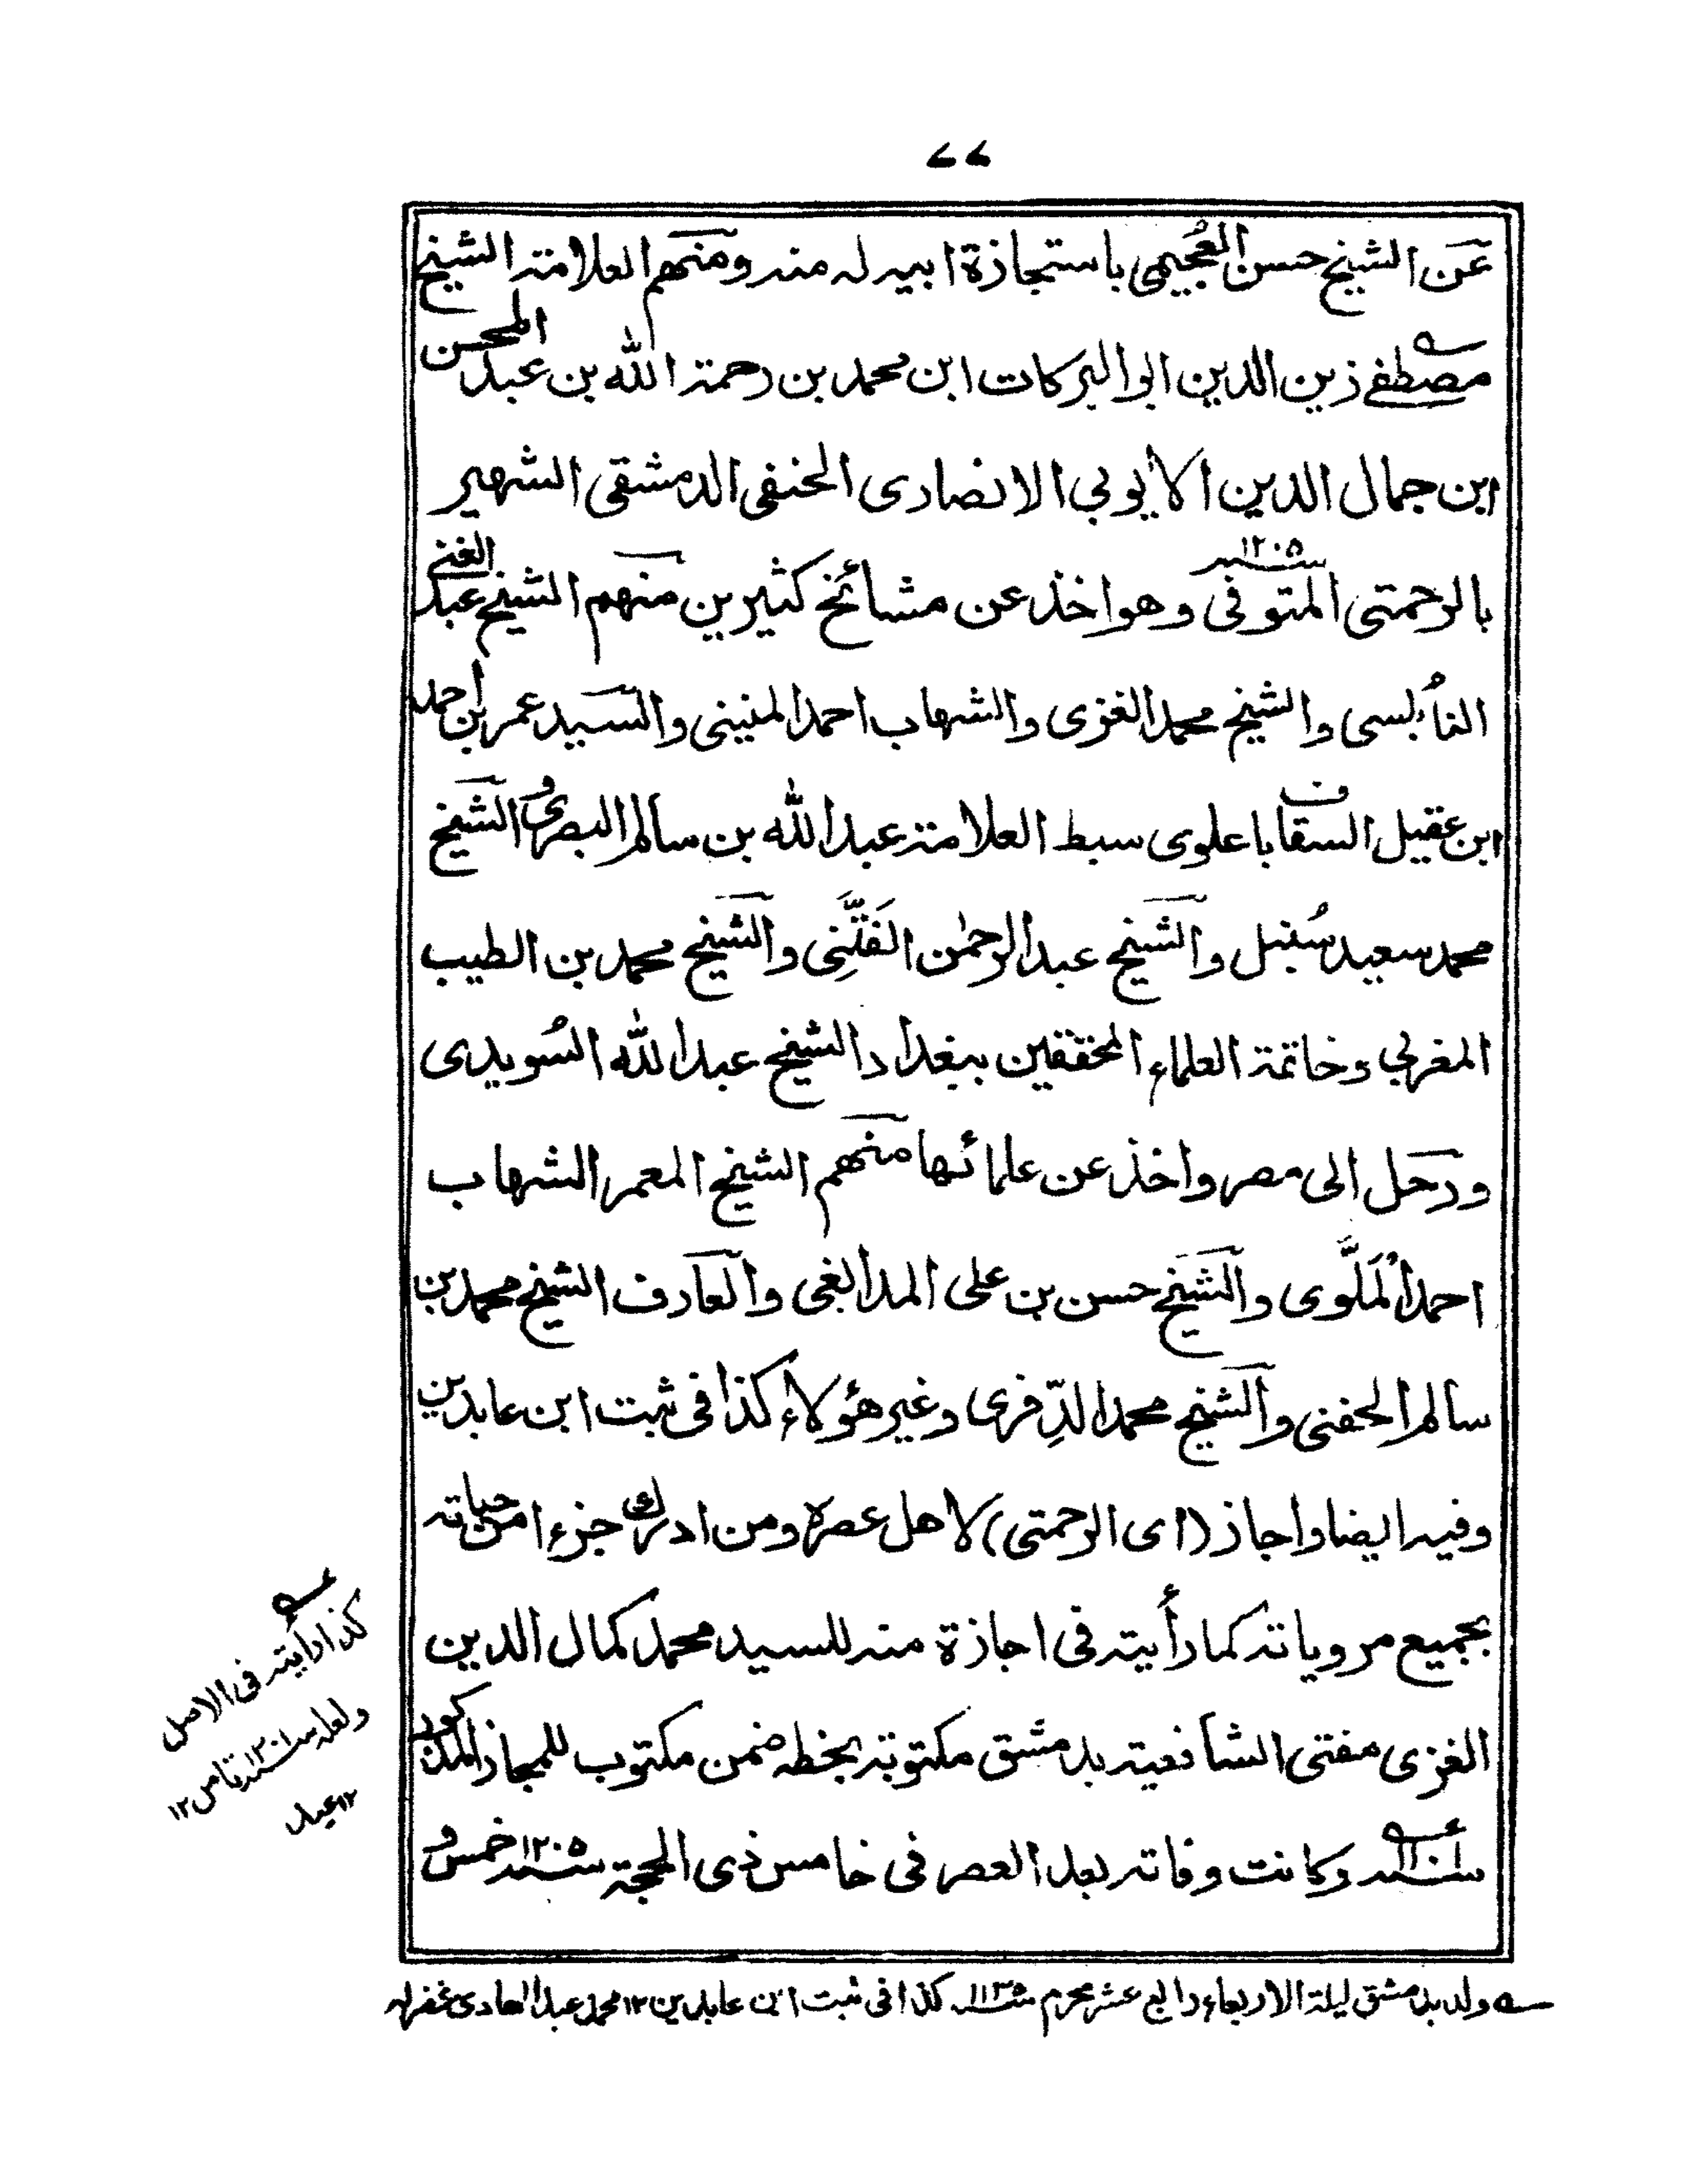 ٧٧
عن الشيخ حسن العُجيمي باستجازة ابيه له منه ومنهم العلامة الشيخ
مصطفى زين الدين ابو البركات ابن محمد بن رحمة الله بن عبد المحسن
ابن جمال الدين الأيوبي الانصارى الحنفى الدمشقى الشهير
بالرحمتى المتوفى سنة ١٢٠٥ وهو اخذ عن مشائخ كثيرين منهم الشيخ عبد الغنى
النابُلسى والشيخ محمد الغزى والشهاب احمد المنينى والسيد عمر بن احمد
ابن عقيل السقاف باعلوى سبط العلامة عبد الله بن سالم البصرى والشيخ
محمد سعيد سُنبل والشيخ عبد الرحمٰن الفَتَّنِى والشيخ محمد بن الطيب
المغربي وخاتمة العلماء المحققين ببغداد الشيخ عبد الله السُويدى
ورحل الى مصر واخذ عن علمائها منهم الشيخ المعمر الشهاب
احمد المَلَّوى والشيخ حسن بن على المدابغى والعارف الشيخ محمد بن
سالم الحفنى والشيخ محمد الدِّفرى وغير هؤلاء كذا فى ثبت ابن عابدين
وفيه ايضا واجاز (اى الرحمتى) لاهل عصره ومن ادرك جزءا من حياته
بجميع مروياته كما رأيته فى اجازة منه للسيد محمد كمال الدين
الغزى مفتى الشافعية بدمشق مكتوبة بخطه ضمن مكتوب للمجاز المذكور
سنة وكانت وفاته بعد العصر فى خامس ذى الحجة سنة ١٢٠٥ خمس و
كذا رأيته فى الاصل
ولعله سنة ١٢٠١
١٢ عبد
ولد بدمشق ليلة الاربعاء رابع عشر محرم سنة ١١٣٥ كذا فى ثبت ابن عابدين ١٢ محمد عبد الهادى غفر له